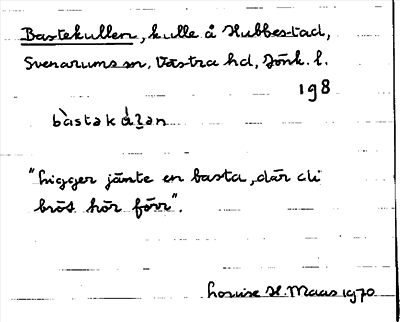 Bastekullen, kulle å Hubbestad,
Svenarums sn, Västra hd, Jönk. l.
198
bàstakálen
"Ligger jämte en basta, där di
bröt hör förr".
Louise H. Maas 1970